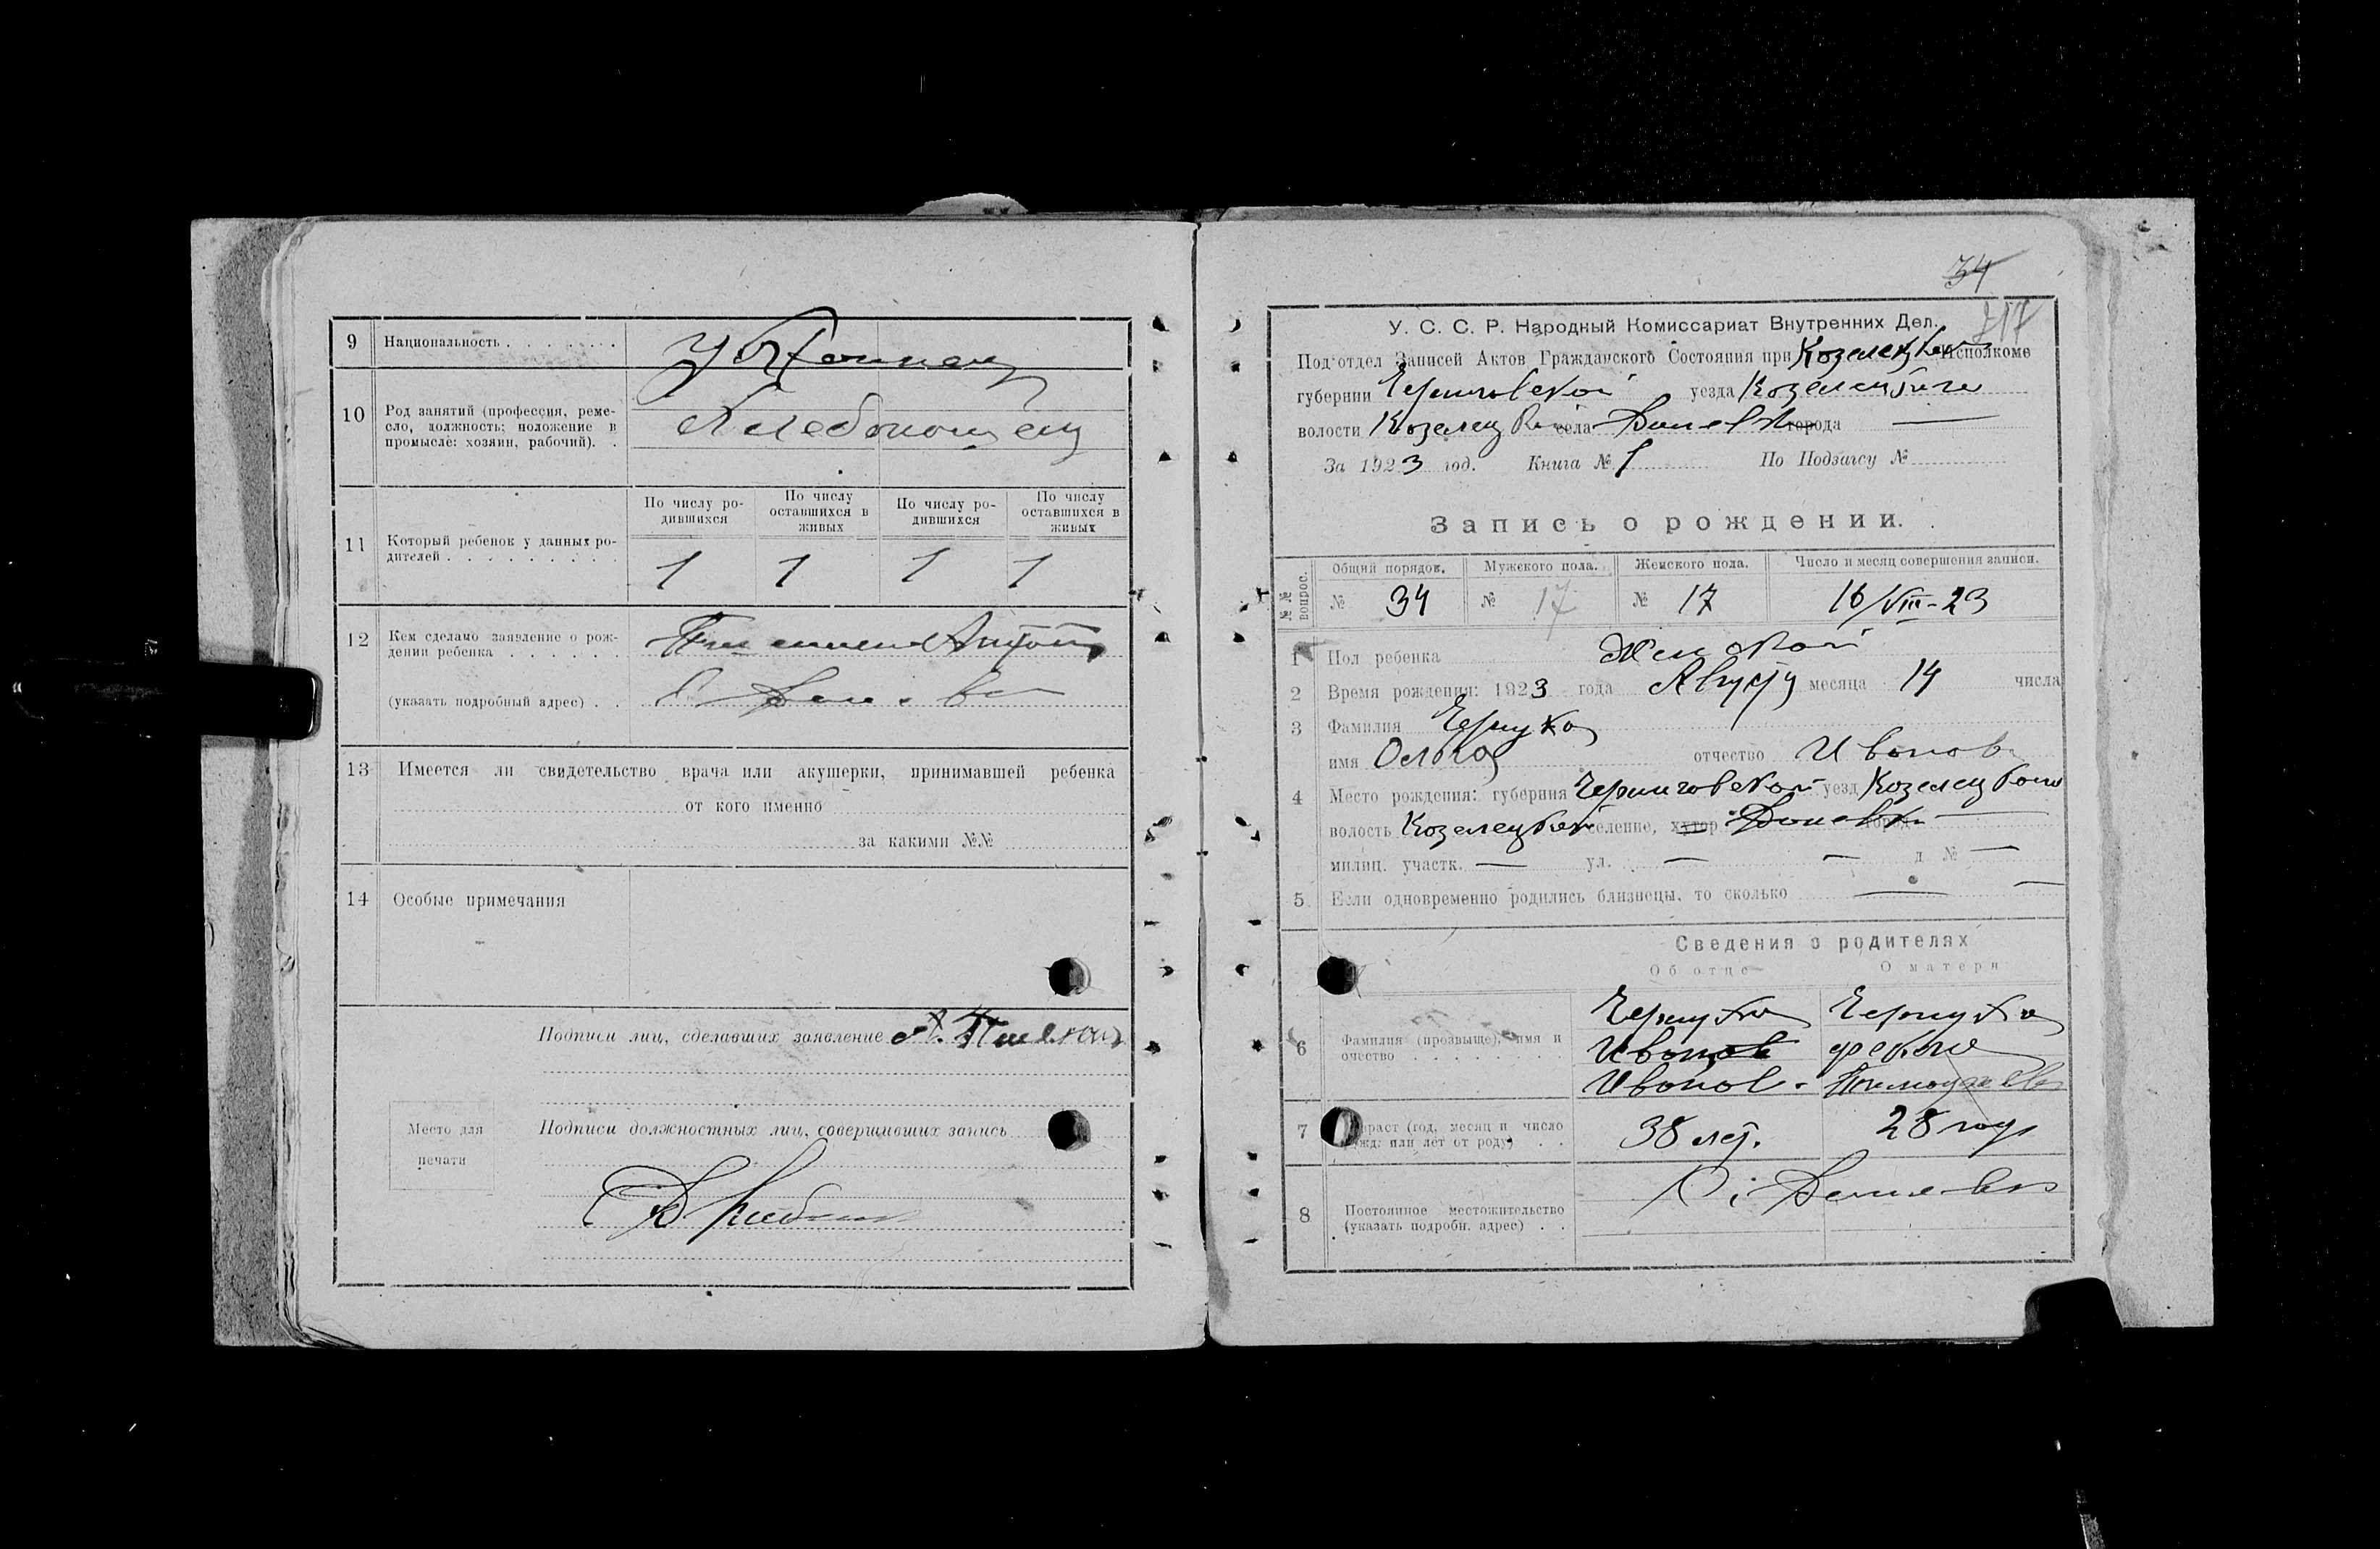 9 Национальность . . . . . . .
Украинец
10 Род занятий (профессия, реме-
сло, должность; положение в
промысле: хозяин, рабочий). .
Хлебопашец
11 Который ребенок у данных ро-
дителей . . . . . . . . .
По числу ро-
дившихся
По числу
оставшихся в
живых
По числу ро-
дившихся
По числу
оставшихся в
живых
1 1 1 1
12 Кем сделано заявление о рож-
дении ребенка . . . . . .
Антон
(указать подробный адрес) . .
13 Имеется ли свидетельство врача или акушерки, принимавшей ребенка
от кого именно
за какими №№
14 Особые примечания
Подписи лиц, сделавших заявление А.
Место для
печати
Подписи должностных лиц, совершивших запись
34
У. С. С. Р. Народный Комиссариат Внутренних Дел.
Под'отдел Записей Актов Гражданского Состояния при Козелецком Исполкоме
губернии Черниговской уезда Козелецкого
волости Козелецкой села Даневка города —
За 1923 год. Книга № 1 По Подзагсу №
Запись о рождении.
№№ вопрос.
Общий порядок. Мужского пола. Женского пола. Число и месяц совершения записи.
№ 34 № 17 № 17 16/VIII-23
1 Пол ребенка Женский
2 Время рождения: 1923 года Август месяца 14 числа
3 Фамилия Чернуха
имя Ольга отчество Иванов
4 Место рождения: губерния Черниговской уезд Козелецкого
волость Козелецкой селение, хутор Даневка город —
милиц. участк. — ул. — — д № —
5 Если одновременно родились близнецы, то сколько — —
Сведения о родителях
Об отце О матери
6 Фамилия (прозвище), имя и
очество . . . . . . . .
Чернуха Чернуха
Иван Фекла
Иванов.
7 Возраст (год, месяц и число
рожд. или лет от роду) . .
38 лет. 28 год
8 Постоянное местожительство
(указать подробн. адрес) . .
С. Даневка